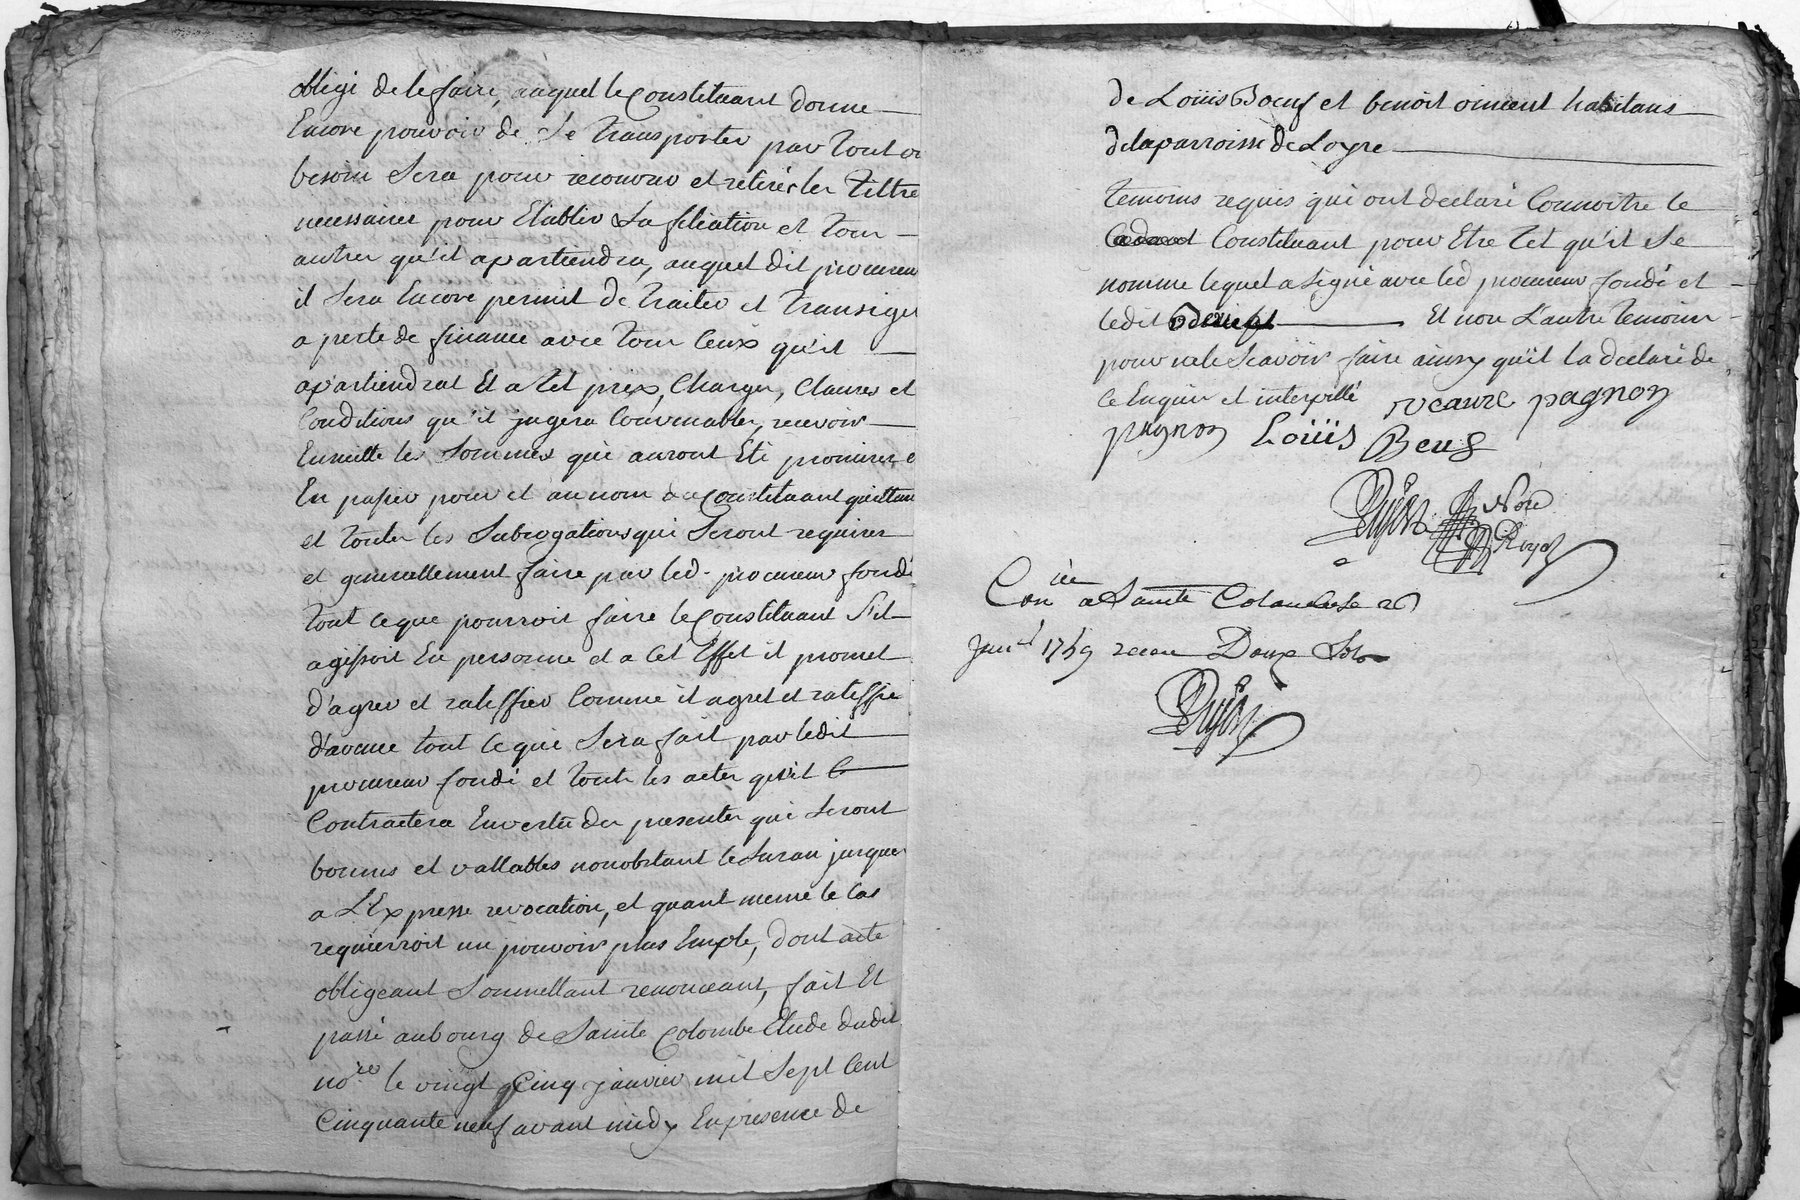 obligé de le faire, auquel le Constituant donne
Encore pouvoir de se transporter par tout ou
besoin sera pour recouvrer et retirer les tiltre
necessaires pour Etablir sa filiation et tous
autres qu'il apartiendra, auquel dit procureur
il sera Encore permit de traiter et transiger
a perte de finance avec tous Ceux qu'il
apartiendrat Et a tel prix, Charges, Clauses et
Conditions qu'il jugera Convenables, recevoir
Ensuitte les sommes qui auront Eté promises
En passer pour et au nom du Constituant quittan
et toutes les subrogations qui seront requises
et generallement faire par led. procureur fondé
tout ce que pourroit faire le Constituant s'il
agissoit En personne et a Cet Effet il promet
d'agreer et ratiffier Comme il agret et ratiffie
d'avance tout ce qui sera fait par ledit
procureur fondé et touts les actes qu'il
Contractera En vertu des presentes qui seront
bonnes et vallables nonobstant le suran jusques
a L'Expresse revocation, et quant meme le Cas
requierroit un pouvoir plus Emple, dont acte
obligeant soumettant renonceant, fait Et
passé au bourg de Sainte Colombe Etude dudit
no.re le vingt Cinq janvier mil sept Cent
Cinquante neuf avant midy En presence de
de Loüis Boeuf et benoit habitans
de la parroisse de Loyre
temoins requis qui ont declaré Connoitre le
Constituant pour Etre tel qu'il se
nomme lequel a signé avec led procureur fondé et
ledit Et non L'autre temoins
pour ne le scavoir faire ainsy qu'il la declaré de
ce Enquis et interpellé pagnon
pagnon Loüis Beuf
Dujast Nore
Royal
Con.lée a Sainte Colombe le 26
Janv.r 1759 receu Douze Sols
Dujast